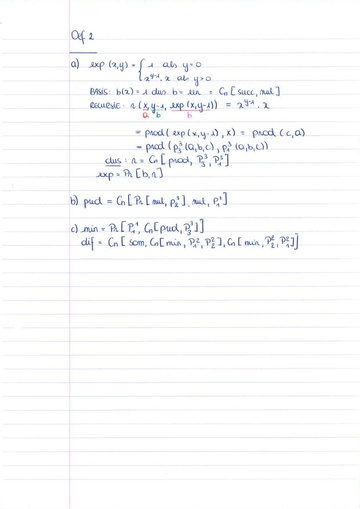 Oef 2
a) exp (x,y) = { 1 als y=0
x^{y-1}. x als y>0
BASIS: b(x) = 1 dus b = een = Cn [succ, nul]
RECURSIE: r (x, y-1, exp(x,y-1)) = x^{y-1}. x
a b b
= prod( exp(x,y-1), x) = prod (c,a)
= prod (P_3^3 (a,b,c), P_1^3 (a,b,c))
dus: r = Cn [prod, P_3^3, P_1^3]
exp = Pr [b,r]
b) pred = Cn [ Pr [ nul, P_2^3 ], nul, P_1^1 ]
c) min = Pr [ P_1^1, Cn[pred, P_3^3]]
dif = Cn [ som, Cn[min, P_1^2, P_2^2], Cn [ min, P_2^2, P_1^2]]